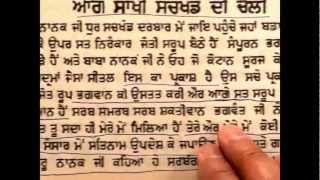 ਅਗੇ ਸਾਖੀ ਸਚਖੰਡ ਦੀ ਚਲੀ
ਨਾਨਕ ਜੀ ਧੁਰ ਸਚਖੰਡ ਦਰਬਾਰ ਮੇਂ ਜਾਇ ਪਹੁੰਚੇ ਜਹਾਂ ਬਡਾ
ਕੇ ਉਪਰ ਸਤ ਨਿਰੰਕਾਰ ਜੋਤੀ ਸਰੂਪ ਬੈਠੇ ਹੈਂ ਸੰਪੂਰਨ ਭਗਵਾਨ
ਹੈਂ ਅਤੇ ਬਾਬਾ ਨਾਨਕ ਜੀ ਨੇ ਓਹ ਜੋ ਕੋਟਾਨ ਸੂਰਜ ਕੇ
ਚੰਦ੍ਰਮਾਂ ਜੈਸਾ ਸੀਤਲ ਇਸ ਕਾ ਪ੍ਰਕਾਸ਼ ਹੈ ਉਸ ਸਚੇ ਪ੍ਰਕਾ
ਰੂਪ ਭਗਵਾਨ ਕੀ ਉਸਤਤ ਕਰੀ ਔਰ ਆਗੇ ਸਤ ਸਰੂਪ
ਸਰਬ ਸਮਰਥ ਸਰਬ ਸ਼ਕਤੀਵਾਨ ਭਗਵੰਤ ਜੀ ਨੇ
ਤੂ ਸਦਾ ਹੀ ਮੇਰੇ ਮੇਂ ਮਿਲਿਆ ਹੈਂ ਤੇਰੇ ਔਰ ਮੇਰੇ ਮੇਂ ਕੋਈ
ਸੰਸਾਰ ਮੇਂ ਸਤਿਨਾਮ ਉਪਦੇਸ਼ ਕੇ ਜਪਾਉ
ਨਾਨਕ ਜੀ ਕਹਿਆ ਹੇ ਸਰਬੰਗ